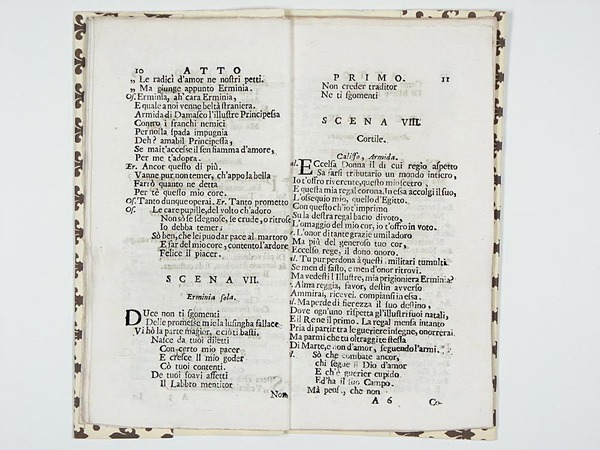 10 ATTO
„ Le radici d'amor ne nostri petti.
„ Ma giunge appunto Erminia.
Os. Erminia, ah' cara Erminia,
E quale a noi venne beltà straniera.
Armida di Damasco l'illustre Principessa
Contro i franchi nemici
Per noi la spada impugnia
Deh? amabil Principessa,
Se mait'accesse il sen fiamma d'amore,
Per me t'adopra.
Er. Ancor questo di più.
Vanne pur, non temer, ch'appo la bella
Farrò quanto ne detta
Per tè questo mio core.
Os. Tanto dunque operai. Er. Tanto prometto
Os. Le care pupille, del volto ch'adoro
Non sò se sdegnose, se crude, o ritrose
Io debba temer;
Sò ben, che lei puo dar pace al martoro
E far del mio core, contento l'ardore
Felice il piacer.
SCENA VII.
Erminia sola.
DUce non ti sgomenti
Delle promesse mie la lusingha fallace
Vi hò la parte magior, e ciò ti basti.
Nasce da tuoi diletti
Con certo mio pacer
E cresce il mio goder
Cò tuoi contenti.
De tuoi soavi affetti
Il Labbro mentitor
Non
PRIMO. 11
Non creder traditor
Ne ti sgomenti
SCENA VIII.
Cortile.
Califfo, Armida.
al. ECcelsa Donna il di cui regio aspetto
Sa farsi tributario un mondo intiero,
Io t'offro riverente, questo mio scetro,
E questa mia regal corona. In esa accolgi il suo,
L'osequio mio, quello d'Egitto.
Con questo ch'io t'imprimo
Su la destra regal bacio divoto,
L'omaggio del mio cor, io t'offro in voto.
r. L'onor di tante grazie umil adoro
Ma più del generoso tuo cor,
Eccelso rege, il dono onoro.
al. Tu pur perdona à questi militari tumulti
Se men di fasto, e men d'onor ritrovi.
Ma vedesti l'Illustre, mia prigioniera Erminia?
r. Alma reggia, favor, destin avverso
Ammirai, ricevei. compiansi in esa.
al. Ma perde di fierezza il suo destino,
Dove ogn'uno rispetta gl'illustri suoi natali,
E il Rene il primo. La regal mensa intanto
Pria di partir tra le guerriere insegne, onorerai.
Ma parmi che tu oltraggi te stessa
Di Marte, e non d'amor, seguendo l'armi.
Sò che combate ancor,
chi segue il Dio d'amor
E ch'è guerier cupido
Ed'ha il suo Campo.
Mà pens., che non
A 6 Co-